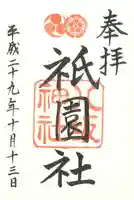 奉拝
祇園社
八坂神社
平成二十九年十月十三日